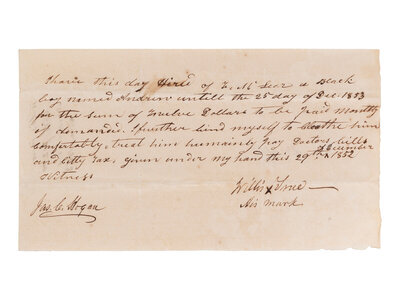 I have this day Hired of a Black
boy named Andrew untill the 25 day of Dec. 1853
for the sum of Twelve Dollars to be paid monthly
if demanded. I further bind myself to Cloathe him
Comfortably, treat him humainly Pay Doctors bills
and City Tax, given under my hand this 29th December 1852
Witness
Willis X True
His mark
Jas. C. Hogan